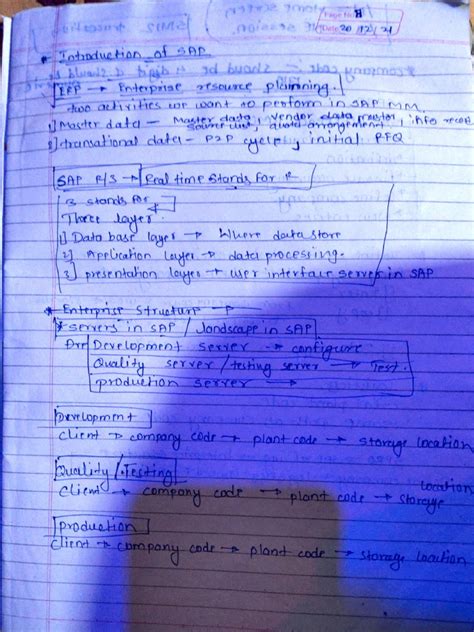 Page No. 8
Date 20/12/21
* Introduction of SAP
ERP → Enterprise resource planning.
two activities we want to perform in SAP MM.
1] Master data - Master data, Vendor data,
source list, quota arrangement, info recod
2] transational data - P2P cycle, initial RFQ
SAP R/3 → Real time Stands for R
3 stands for
Three layer.
1] Data base layer → Where data store
2] Application layer → data processing.
3] presentation layer → user interface server in SAP
* Enterprise Structure →
* servers in SAP / landscape in SAP
Development server → configure
Quality server / testing server → Test.
production server →
Development
client → company code → plant code → storage location
Quality / Testing
client → company code → plant code → storage location
production
client → company code → plant code → storage location